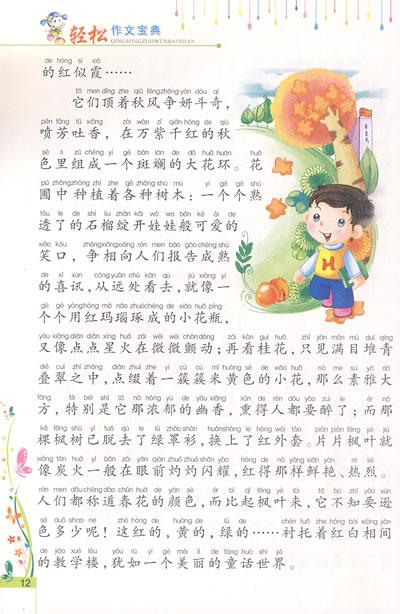 轻松 作文宝典
QINGSONGZUOWENBAODIAN
de hóng sì xiá
的红似霞……
tā men dǐng zhe qiū fēng zhēng yán dòu qí
它们顶着秋风争妍斗奇，
pēn fāng tǔ xiāng zài wàn zǐ qiān hóng de qiū
喷芳吐香，在万紫千红的秋
sè lǐ zǔ chéng yí gè bān lán de dà huā huán huā
色里组成一个斑斓的大花环。花
pǔ zhōng zhòng zhí zhe gè zhǒng shù mù yí gè gè shú
圃中种植着各种树木：一个个熟
tòu le de shí liu zhàn kāi wá wa bān kě ài de
透了的石榴绽开娃娃般可爱的
xiào kǒu zhēng xiāng xiàng rén men bào gào chéng shú
笑口，争相向人们报告成熟
de xǐ xùn cóng yuǎn chù kàn qù jiù xiàng yí
的喜讯，从远处看去，就像一
gè gè yòng hóng mǎ nǎo zhuó chéng de xiǎo huā píng
个个用红玛瑙琢成的小花瓶，
yòu xiàng diǎn diǎn xīng huǒ zài wēi wēi chàn dòng zài kàn guì huā zhǐ jiàn mǎn mù duī qīng
又像点点星火在微微颤动；再看桂花，只见满目堆青
dié cuì zhī zhōng diǎn zhuì zhe yí cù cù mǐ huáng sè de xiǎo huā nà me sù yǎ dà
叠翠之中，点缀着一簇簇米黄色的小花，那么素雅大
fāng tè bié shì tā nà nóng yù de yōu xiāng xūn de rén dōu yào zuì le ér nà
方，特别是它那浓郁的幽香，熏得人都要醉了；而那
kē fēng shù yǐ tuō qù le lǜ zhào shān huàn shàng le hóng wài tào piàn piàn fēng yè jiù
棵枫树已脱去了绿罩衫，换上了红外套。片片枫叶就
xiàng tàn huǒ yì bān zài yǎn qián zhuó zhuó shǎn yào hóng de nà yàng xiān yàn rè liè
像炭火一般在眼前灼灼闪耀，红得那样鲜艳、热烈。
rén men dōu chēng dào chūn huā de yán sè ér bǐ qǐ fēng yè lái tā bù zhī yào xùn
人们都称道春花的颜色，而比起枫叶来，它不知要逊
sè duō shao ne zhè hóng de huáng de lǜ de chèn tuō zhe hóng bái xiāng jiàn
色多少呢！这红的，黄的，绿的……衬托着红白相间
de jiào xué lóu yóu rú yí gè měi lì de tóng huà shì jiè
的教学楼，犹如一个美丽的童话世界。
12
H